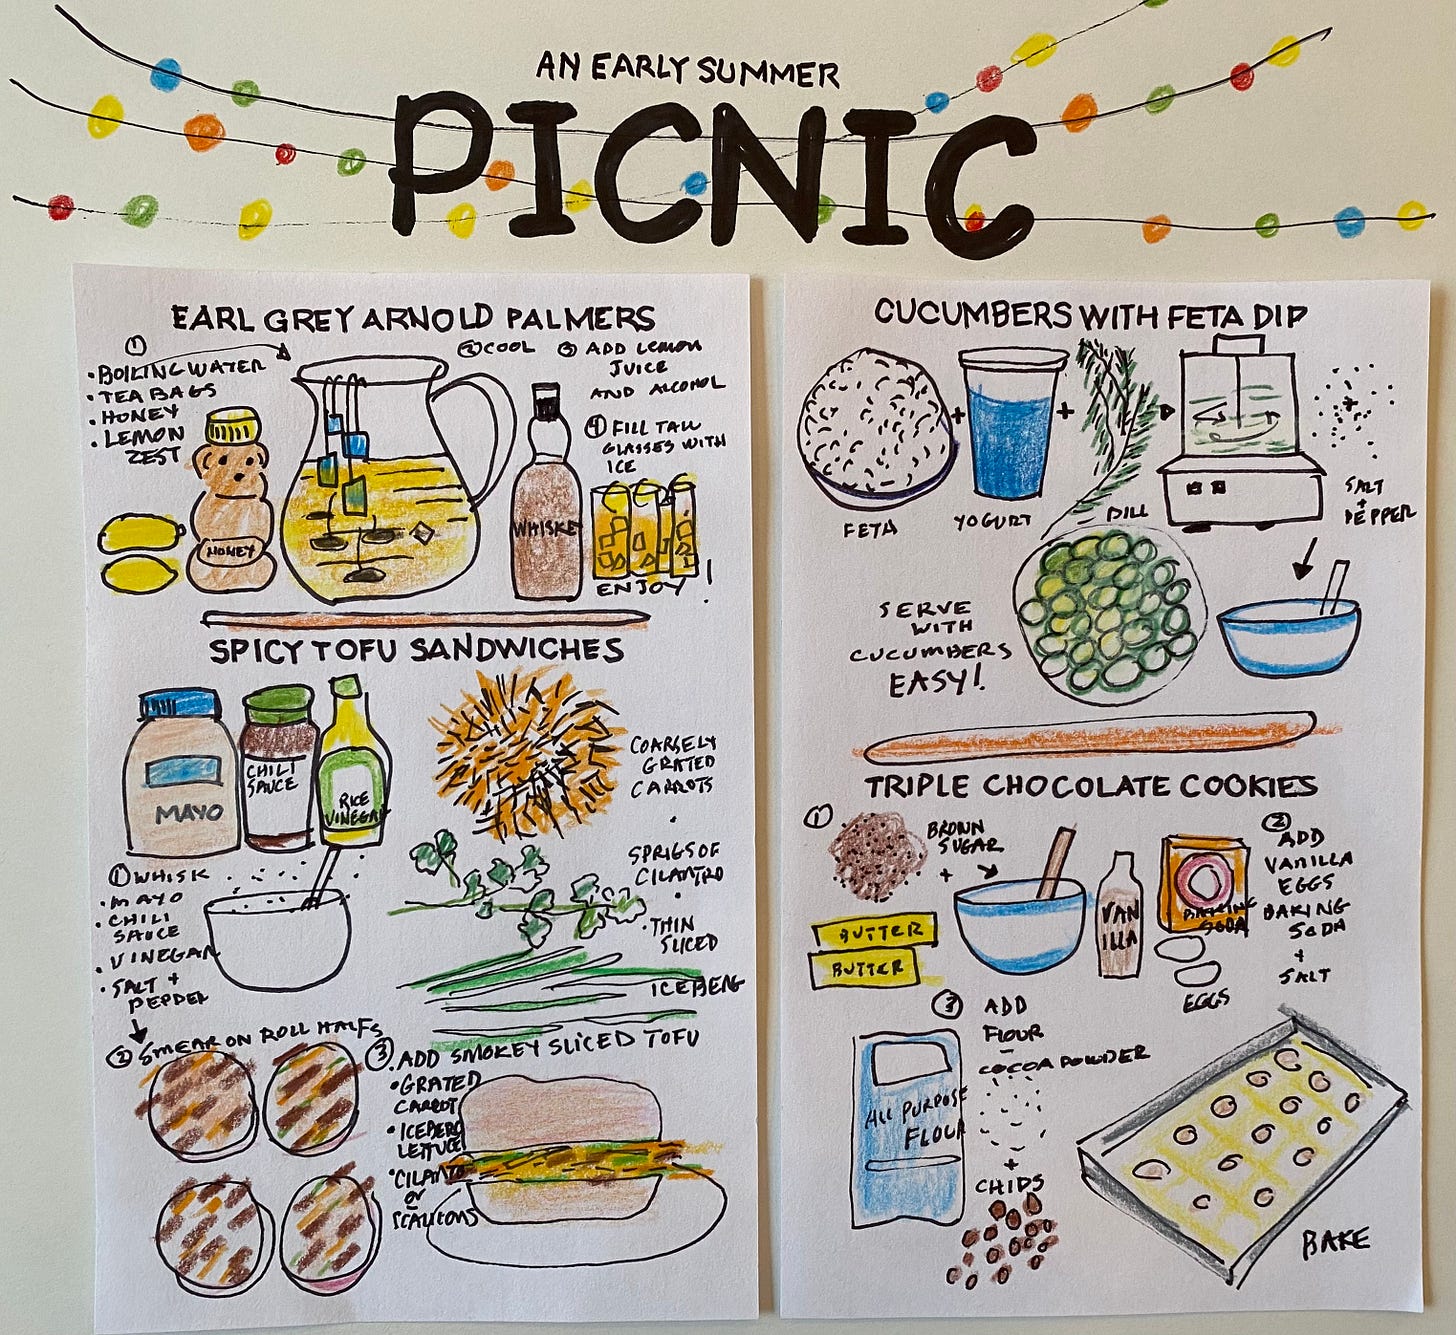 AN EARLY SUMMER
PICNIC
EARL GREY ARNOLD PALMERS
①
• BOILING WATER
• TEA BAGS
• HONEY
• LEMON
ZEST
② COOL
③ ADD LEMON
JUICE
AND ALCOHOL
④ FILL TALL
GLASSES WITH
ICE
HONEY
WHISKEY
ENJOY!
SPICY TOFU SANDWICHES
MAYO
CHILI
SAUCE
RICE
VINEGAR
COARSELY
GRATED
CARROTS
•
SPRIGS OF
CILANTRO
•
• THIN
SLICED
ICEBERG
① WHISK
• MAYO
• CHILI
SAUCE
• VINEGAR
• SALT +
PEPPER
② SMEAR ON ROLL HALFS
③ • ADD SMOKEY SLICED TOFU
• GRATED
CARROT
• ICEBERG
LETTUCE
• CILANTO
OR
SCALLIONS
CUCUMBERS WITH FETA DIP
+
+
+
FETA
YOGURT
DILL
SALT
+
PEPPER
SERVE
WITH
CUCUMBERS
EASY!
TRIPLE CHOCOLATE COOKIES
①
BROWN
SUGAR
+
BUTTER
BUTTER
VAN
ILLA
BAKING
SODA
EGGS
②
ADD
VANILLA
EGGS
BAKING
SODA
+
SALT
③ ADD
FLOUR
–
COCOA POWDER
ALL PURPOSE
FLOUR
+
CHIPS
BAKE